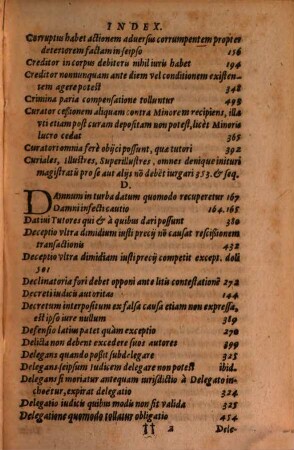 INDEX.
Corruptus habet actionem aduersus corrumpentem propter
deteriorem factam in seipso 156
Creditor in corpus debitoris nihil iuris habet 194
Creditor nonnunquam ante diem vel conditionem existen-
tem agere potest 348
Crimina paria compensatione tolluntur 498
Curator cessionem aliquam contra Minorem recipiens, illa
vti etiam post curam depositam non potest, licèt Minoris
lucro cedat 365
Curatori omnia ferè obijci possunt, quæ tutori 392
Curiales, Illustres, Superillustres, omnes denique in iure
magistratū pro se aut alijs nō debēt iurgari 353. & seq.
D.
DAmnum in turba datum quomodo recuperetur 167
Damni infecti cautio 164. 165
Datiui Tutores qui & à quibus dari possunt 380
Deceptio vltra dimidium iusti precij nō causat rescisionem
transactionis 432
Deceptio vltra dimidiam iusti precij competit except. doli
501
Declinatoria fori debet opponi ante litis contestationē 272
Decreti iudicis autoritas 144
Decretum interpositum ex falsa causa etiam non expressa,
est ipso iure nullum 389
Defensio latius patet quàm exceptio 270
Delicta non debent excedere suos autores 289
Delegans quando possit subdelegare 325
Delegans seipsum Iudicem delegare non potest ibid.
Delegans si moriatur antequam iurisdictio à Delegato in-
choetur, expirat delegatio 324
Delegatio iudicis quibus modis non sit valida 325
Delegatione quomodo tollatur obligatio 454
†† 2 Dele-